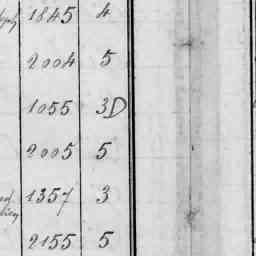 1845 4
2004 5
1055 3D
2005 5
1357 3
2155 5